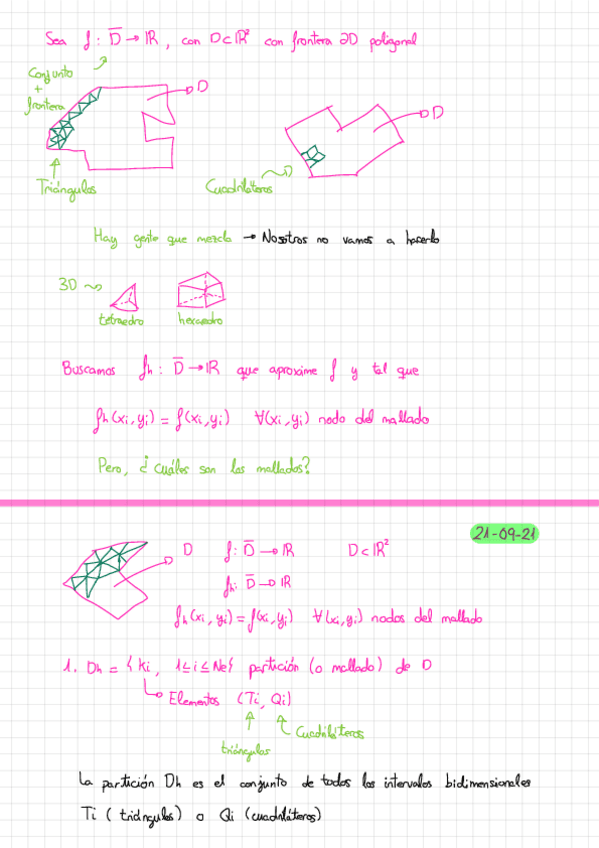 Sea f: D̅ → ℝ, con D⊂ℝ² con frontera ∂D poligonal
Conjunto
+
frontera
D
D
Triángulos
Cuadriláteros
Hay gente que mezcla → Nosotros no vamos a hacerlo
3D
tetraedro hexaedro
Buscamos fh: D̅ → ℝ que aproxime f y tal que
fh(xi,yi) = f(xi,yi) ∀(xi,yi) nodo del mallado
Pero, ¿cuáles son los mallados?
21-09-21
D f: D̅ → ℝ D⊂ℝ²
fh: D̅ → ℝ
fh(xi,yi) = f(xi,yi) ∀(xi,yi) nodos del mallado
1. Dh = {Ki, 1≤i≤Ne} partición (o mallado) de D
Elementos (Ti, Qi)
Cuadriláteros
triángulos
La partición Dh es el conjunto de todos los intervalos bidimensionales
Ti (triángulos) o Qi (cuadriláteros)